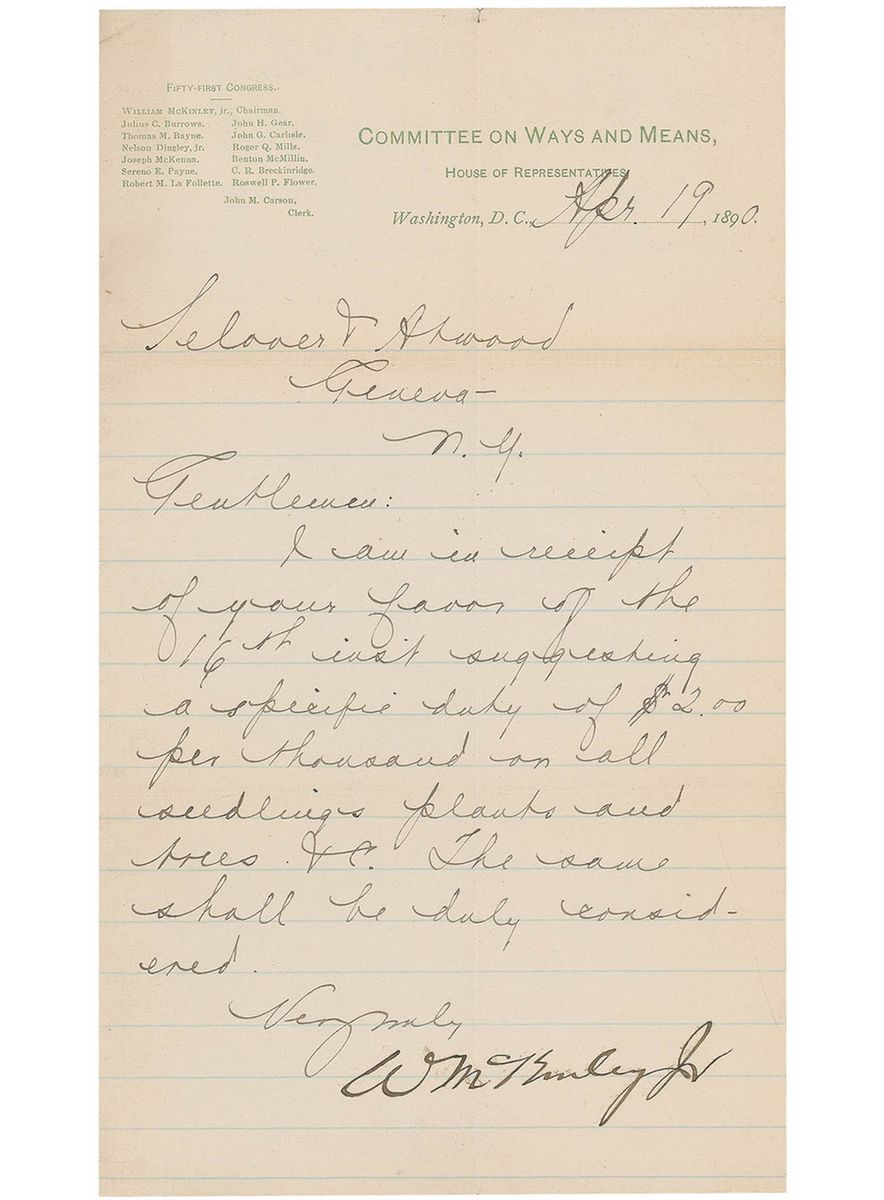 FIFTY-FIRST CONGRESS.
WILLIAM McKINLEY, jr., Chairman.
Julius C. Burrows. John H. Gear.
Thomas M. Bayne. John G. Carlisle.
Nelson Dingley, jr. Roger Q. Mills.
Joseph McKenna. Benton McMillin.
Sereno E. Payne. C. R. Breckinridge.
Robert M. La Follette. Roswell P. Flower.
John M. Carson,
Clerk.
COMMITTEE ON WAYS AND MEANS,
HOUSE OF REPRESENTATIVES,
Washington, D. C., Apr. 19, 1890.
Selover & Atwood
Geneva-
N. Y.
Gentlemen:
I am in receipt
of your favor of the
16th inst suggesting
a specific duty of $2.00
per thousand on all
seedlings plants and
trees &c. The same
shall be duly consid-
ered.
Very truly
W McKinley Jr